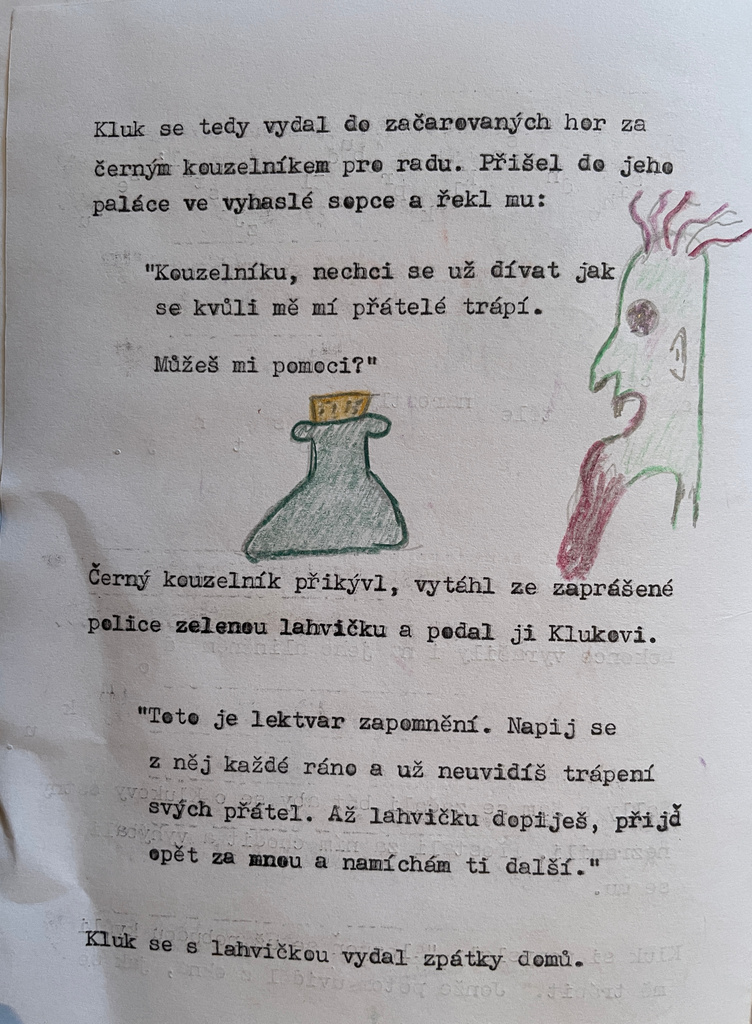 Kluk se tedy vydal do začarovaných hor za
černým kouzelníkem pro radu. Přišel do jeho
paláce ve vyhaslé sopce a řekl mu:
"Kouzelníku, nechci se už dívat jak
se kvůli mě mí přátelé trápí.
Můžeš mi pomoci?"
Černý kouzelník přikývl, vytáhl ze zaprášené
police zelenou lahvičku a podal ji Klukovi.
"Toto je lektvar zapomnění. Napij se
z něj každé ráno a už neuvidíš trápení
svých přátel. Až lahvičku dopiješ, přijď
opět za mnou a namíchám ti další."
Kluk se s lahvičkou vydal zpátky domů.